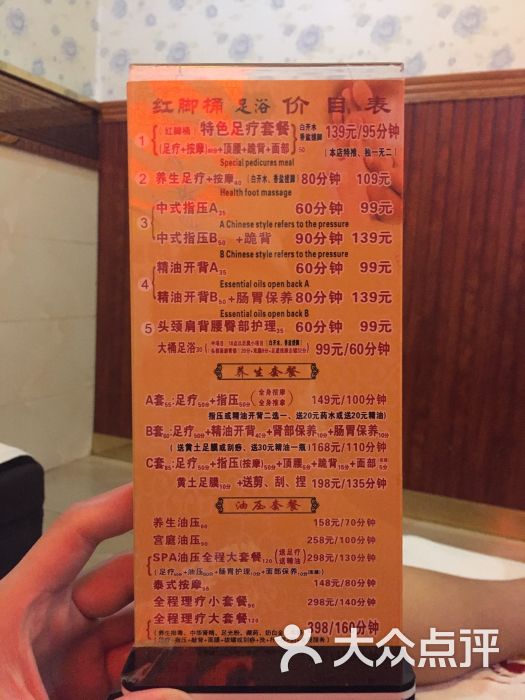 红脚桶 足浴 价目表
1 红脚桶 特色足疗套餐 白开水 香盐搓脚 139元/95分钟
(足疗+按摩+顶腰+跪背+面部) 50 (本店特推、独一无二)
Special pedicures meal
2 养生足疗+按摩60 (白开水、香盐搓脚) 80分钟 109元
Health foot massage
3 中式指压A35 60分钟 99元
A Chinese style refers to the pressure
中式指压B50 +跪背 90分钟 139元
B Chinese style refers to the pressure
4 精油开背A35 60分钟 99元
Essential oils open back A
精油开背B50+肠胃保养 80分钟 139元
Essential oils open back B
5 头颈肩背腰臀部护理35 60分钟 99元
大桶足浴30 99元/60分钟
养生套餐
A套55:足疗50分+指压50分 全身按摩 全身推拿 149元/100分钟
指压或精油开背二选一、送20元药水或送20元精油
B套60:足疗50分+精油开背40分+肾部保养10分+肠胃保养10分
(送黄土足膜或刮痧、送30元精油一瓶) 168元/110分钟
C套:足疗50分+指压(按摩)50分+顶腰5分+跪背15分+面部5分
黄土足膜10分+送剪、刮、捏 198元/135分钟
油压套餐
养生油压60 158元/70分钟
宫庭油压90 258元/100分钟
SPA油压全程大套餐120 (送足疗 送精油) 298元/130分钟
泰式按摩 148元/80分钟
全程理疗小套餐 298元/140分钟
全程理疗大套餐120 398/160分钟
大众点评